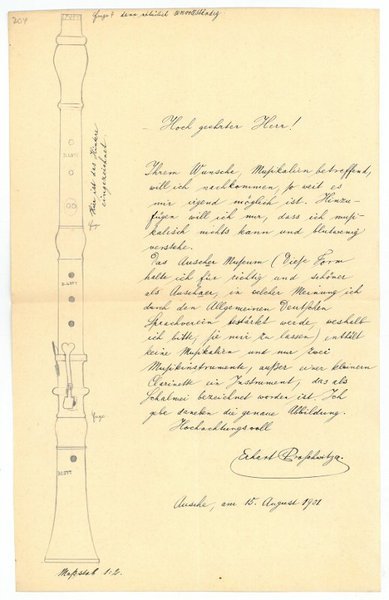 204
Fuge? dann natürlich unvollständig.
Hier ist das Hintere
eingezeichnet.
Fuge
ZLETT
ZLETT
ZLETT
Fuge
Maßstab 1:2.
Hoch geehrter Herr!
Ihrem Wunsche, Musikalien betreffend,
will ich nachkommen, so weit es
mir irgend möglich ist. Hinzu-
fügen will ich nur, dass ich musi-
kalisch nichts kann und blutwenig
verstehe.
Das Auscher Museum (diese Form
halte ich für richtig und schöner
als Auschaer, in welcher Meinung ich
durch den Allgemeinen Deutschen
Sprachverein bestärkt werde, weshalb
ich bitte, sie mir zu lassen) enthält
keine Musikalien und nur zwei
Musikinstrumente, außer einer kleinern
Clarinette ein Instrument, das als
Schalmei bezeichnet worden ist. Ich
gebe daneben die genaue Abbildung.
Hochachtungsvoll
Ausche, am 15. August 1901